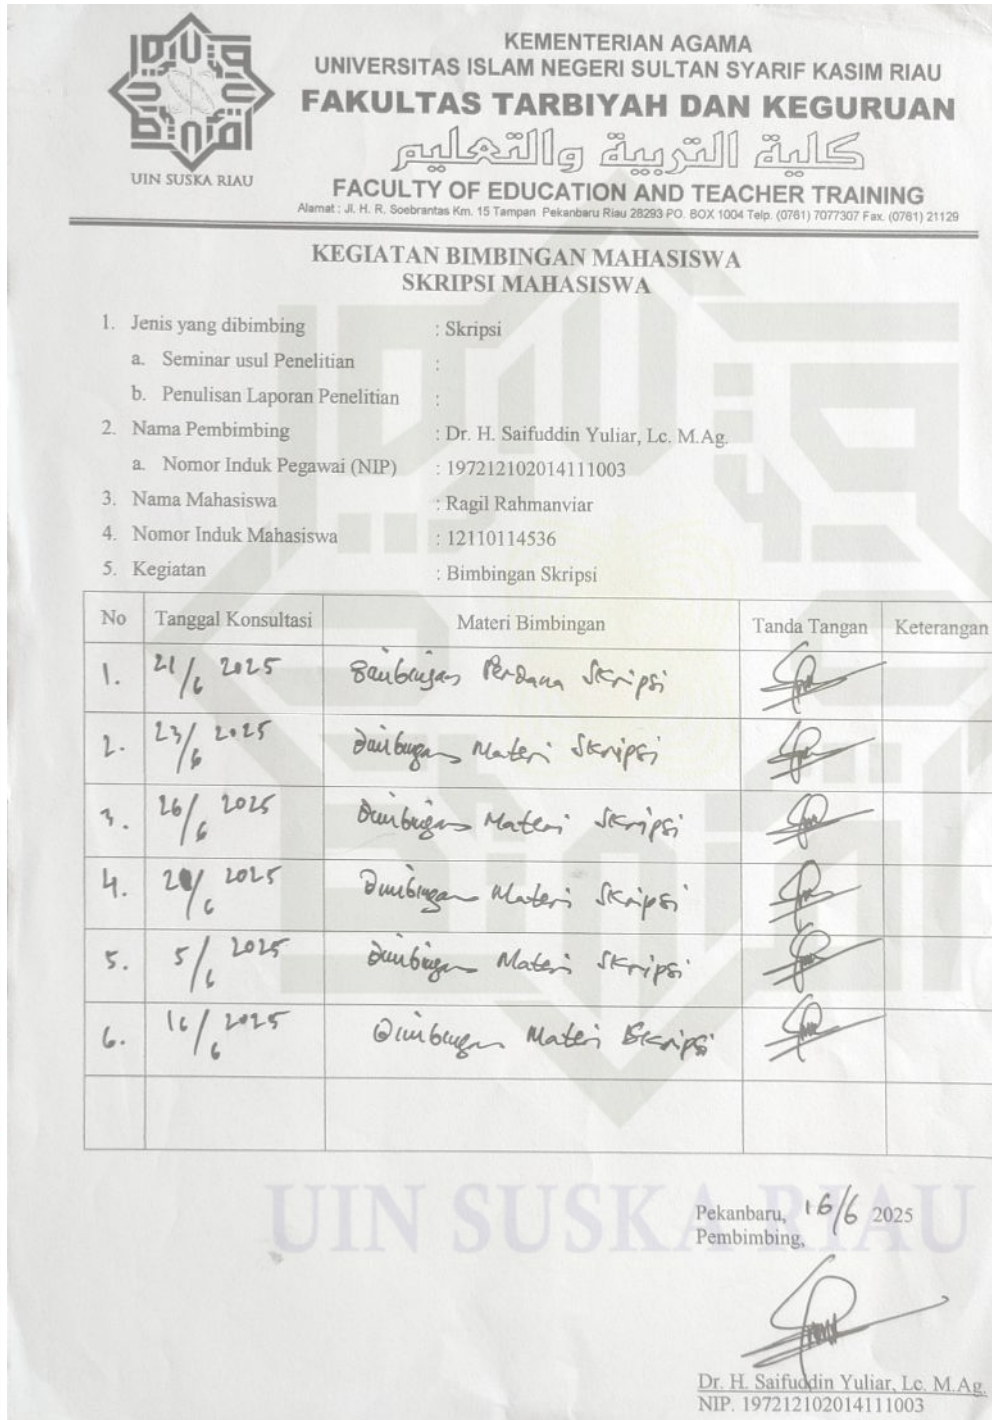 KEMENTERIAN AGAMA
UNIVERSITAS ISLAM NEGERI SULTAN SYARIF KASIM RIAU
FAKULTAS TARBIYAH DAN KEGURUAN
كلية التربية والتعليم
FACULTY OF EDUCATION AND TEACHER TRAINING
Alamat : Jl. H. R. Soebrantas Km. 15 Tampan Pekanbaru Riau 28293 PO. BOX 1004 Telp. (0761) 7077307 Fax. (0761) 21129
UIN SUSKA RIAU
KEGIATAN BIMBINGAN MAHASISWA
SKRIPSI MAHASISWA
1. Jenis yang dibimbing : Skripsi
a. Seminar usul Penelitian :
b. Penulisan Laporan Penelitian :
2. Nama Pembimbing : Dr. H. Saifuddin Yuliar, Lc. M.Ag.
a. Nomor Induk Pegawai (NIP) : 197212102014111003
3. Nama Mahasiswa : Ragil Rahmanviar
4. Nomor Induk Mahasiswa : 12110114536
5. Kegiatan : Bimbingan Skripsi
No Tanggal Konsultasi Materi Bimbingan Tanda Tangan Keterangan
1. 21/6 2025 Bimbingan Perdana Skripsi
2. 23/6 2025 Bimbingan Materi Skripsi
3. 26/6 2025 Bimbingan Materi Skripsi
4. /6 2025 Bimbingan Materi Skripsi
5. 5/6 2025 Bimbingan Materi Skripsi
6. 16/6 2025 Bimbingan Materi Skripsi
UIN SUSKA RIAU
Pekanbaru, 16/6 2025
Pembimbing,
Dr. H. Saifuddin Yuliar, Lc. M.Ag.
NIP. 197212102014111003